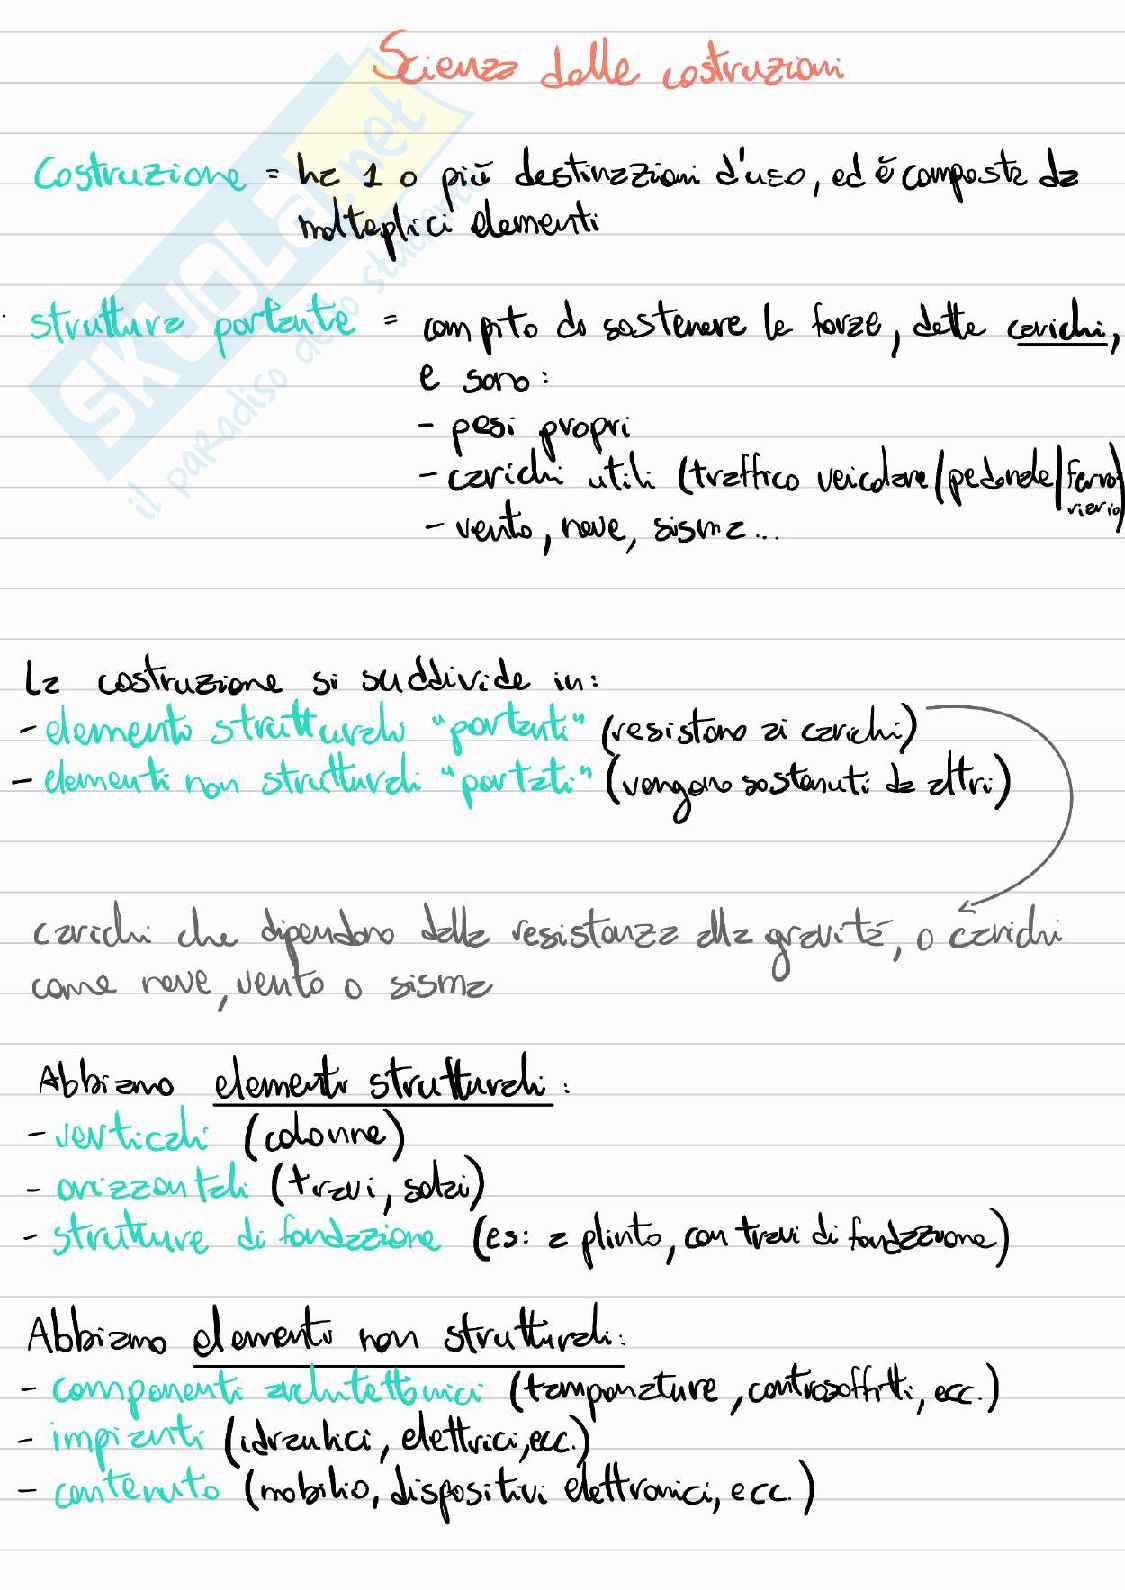 Scienza delle costruzioni
Costruzione = ha 1 o più destinazioni d'uso, ed è composta da
molteplici elementi
struttura portante = compito di sostenere le forze, dette carichi,
e sono:
- pesi propri
- carichi utili (traffico veicolare/pedonale/ferro
viario)
- vento, neve, sisma...
La costruzione si suddivide in:
- elementi strutturali "portanti" (resistono ai carichi)
- elementi non strutturali "portati" (vengono sostenuti da altri)
carichi che dipendono dalla resistenza alla gravità, o carichi
come neve, vento o sisma
Abbiamo elementi strutturali:
- verticali (colonne)
- orizzontali (travi, solai)
- strutture di fondazione (es: a plinto, con travi di fondazione)
Abbiamo elementi non strutturali:
- componenti architettonici (tamponature, controsoffitti, ecc.)
- impianti (idraulici, elettrici, ecc.)
- contenuto (mobilio, dispositivi elettronici, ecc.)
SKUOLA.net
il paradiso dello studente